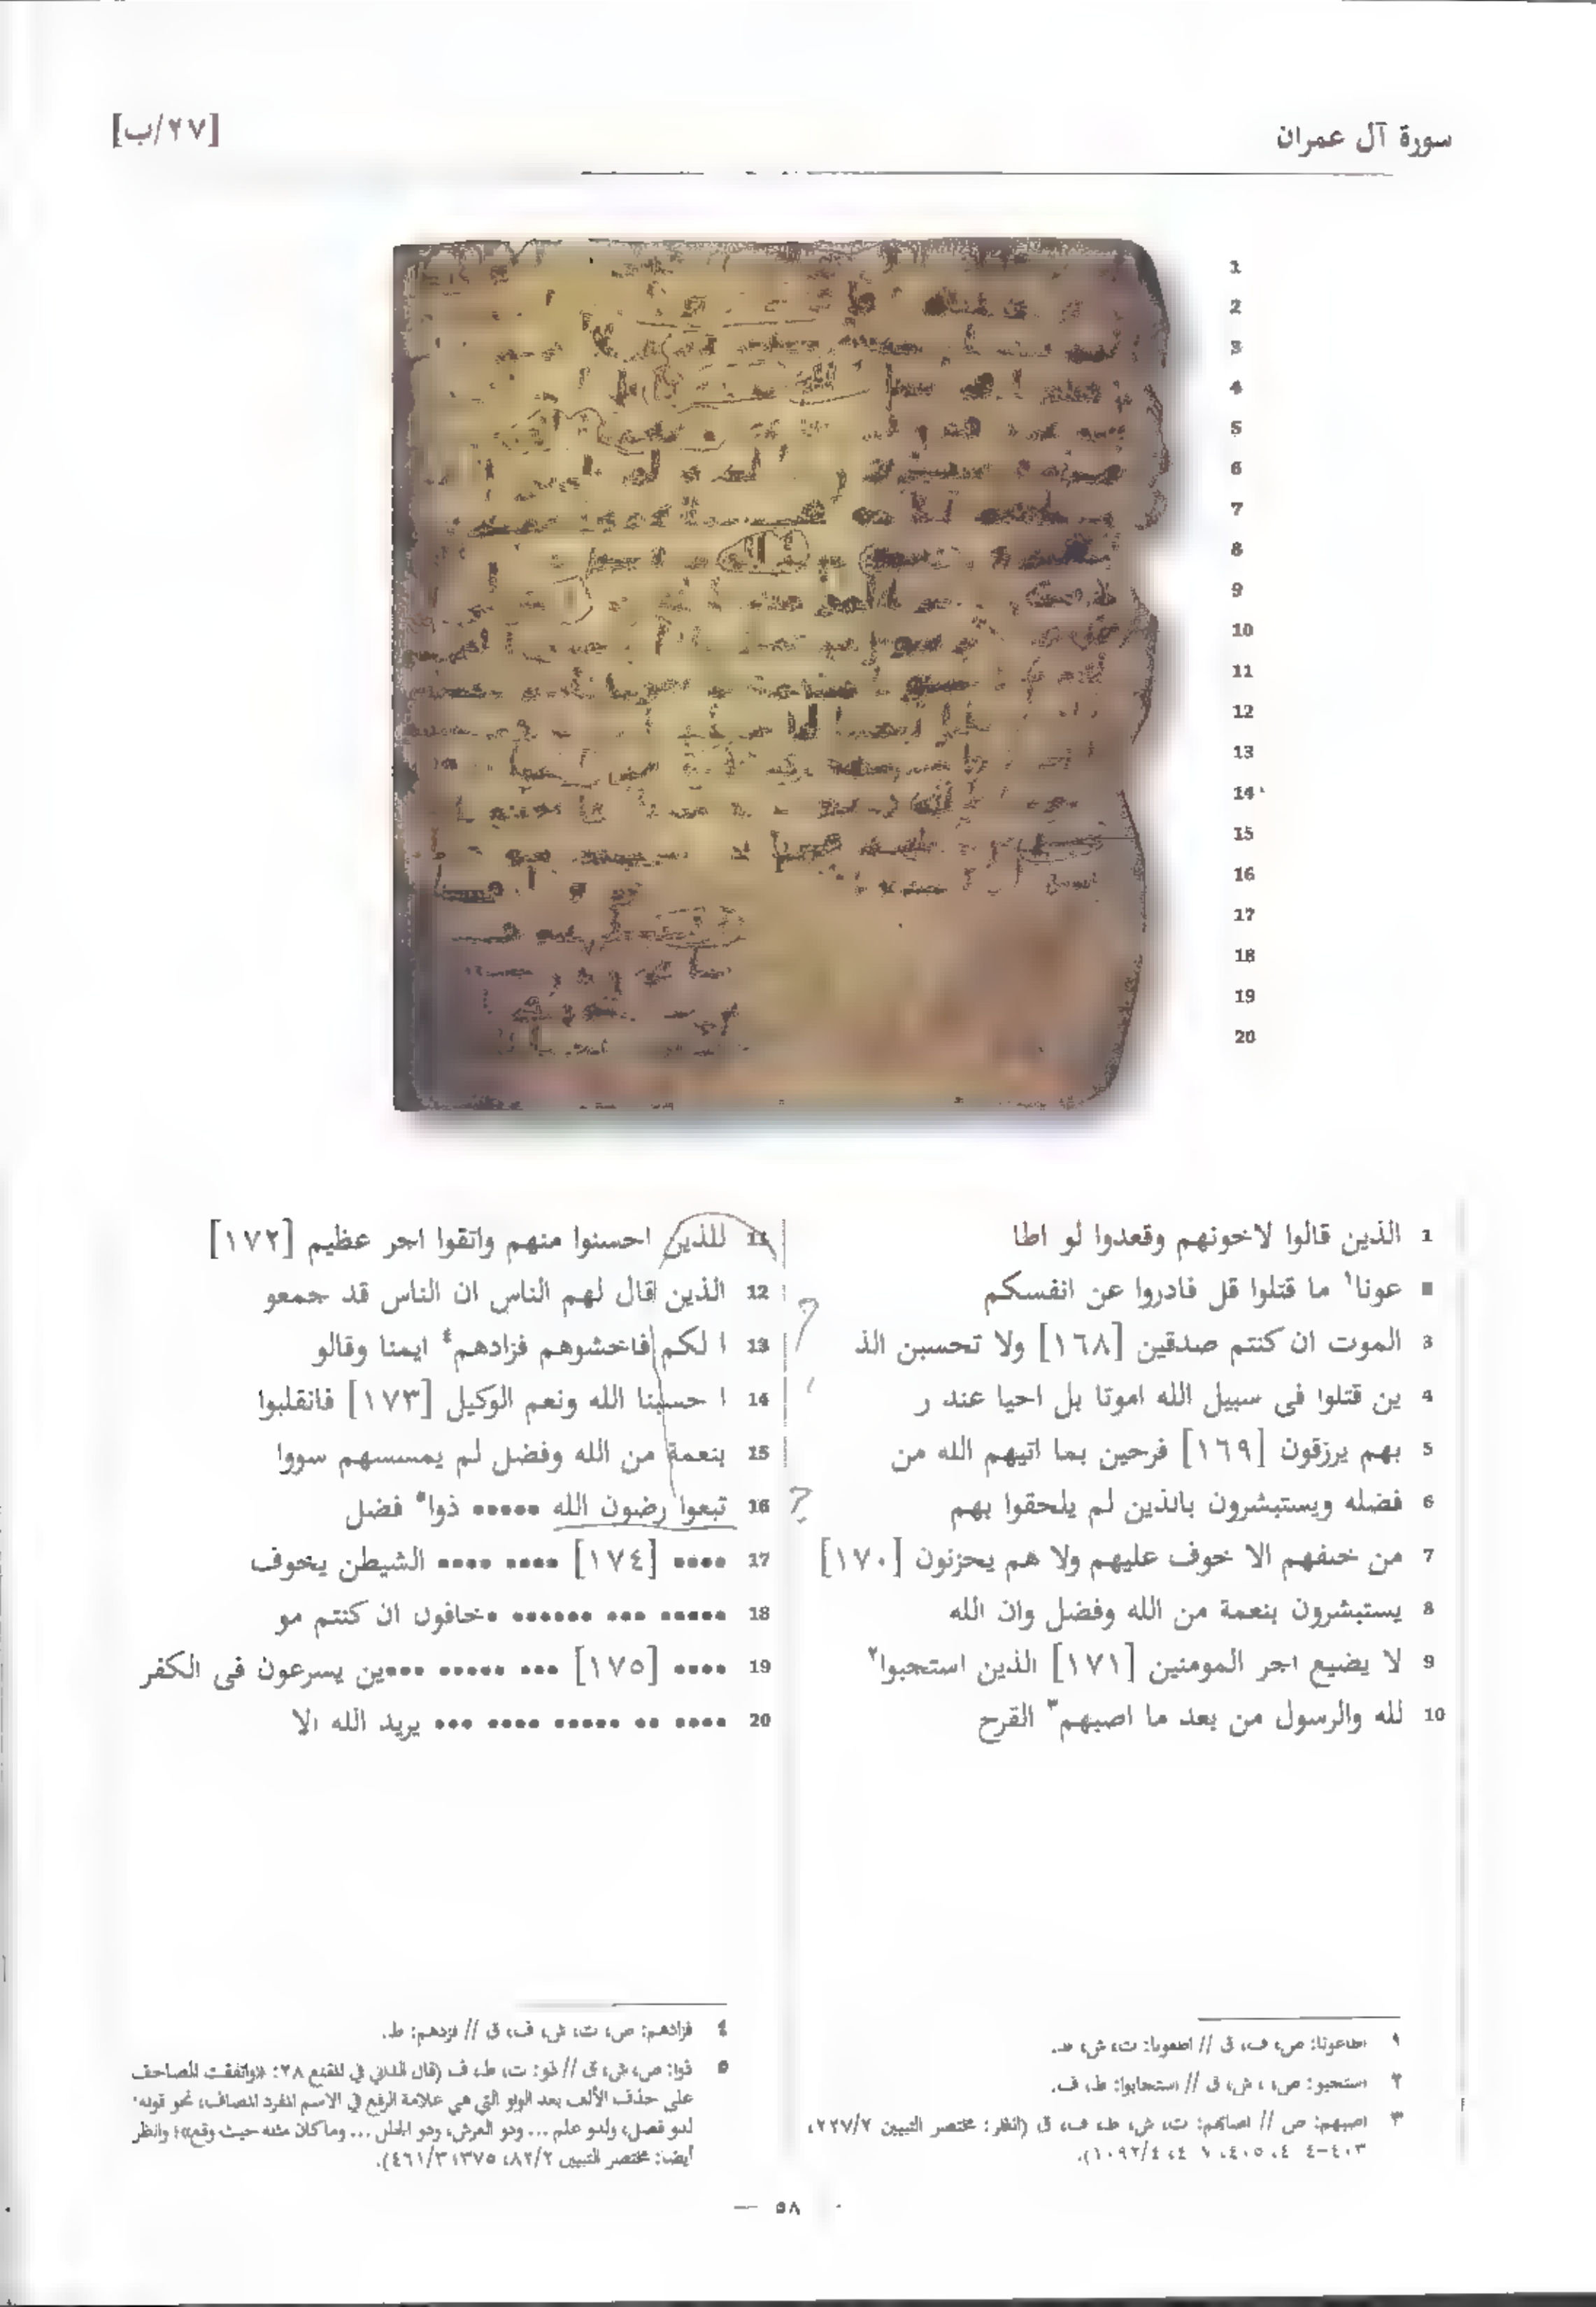 سورة آل عمران
[٢٧/ب]
1
2
3
4
5
6
7
8
9
10
11
12
13
14
15
16
17
18
19
20
1 الذين قالوا لاخونهم وقعدوا لو اطا
عونا١ ما قتلوا قل فادروا عن انفسكم
3 الموت ان كنتم صدقين [١٦٨] ولا تحسبن الذ
4 ين قتلوا فى سبيل الله اموتا بل احيا عند ر
5 بهم يرزقون [١٦٩] فرحين بما اتيهم الله من
6 فضله ويستبشرون بالذين لم يلحقوا بهم
7 من خلفهم الا خوف عليهم ولا هم يحزنون [١٧٠]
8 يستبشرون بنعمة من الله وفضل وان الله
9 لا يضيع اجر المومنين [١٧١] الذين استجبوا٢
10 لله والرسول من بعد ما اصبهم٣ القرح
11 للذين احسنوا منهم واتقوا اجر عظيم [١٧٢]
12 الذين قال لهم الناس ان الناس قد جمعو
13 ا لكم فاخشوهم فزادهم٤ ايمنا وقالو
14 ا حسبنا الله ونعم الوكيل [١٧٣] فانقلبوا
15 بنعمة من الله وفضل لم يمسسهم سووا
16 تبعوا رضون الله ••••• ذوا٥ فضل
17 •••• [١٧٤] •••• •••• الشيطن يخوف
18 ••••• ••• •••••• •خافون ان كنتم مو
19 •••• [١٧٥] ••• ••••• •••ين يسرعون فى الكفر
20 •••• •• ••••• •••• ••• يريد الله الا
١ اطاعونا: ص، ف، ق // اطعونا: ت، ش، ط.
٢ استجبو: ص، ش، ق // استجابوا: ط، ف.
٣ اصبهم: ص // اصابهم: ت، ش، ط، ف، ق (انظر: مختصر التبيين ٢٢٧/٢،
٤ فزادهم: ص، ت، ش، ف، ق // فزدهم: ط.
٥ ذوا: ص، ش، ق // ذو: ت، ط، ف (قال الداني في المقنع ٢٨: «واتفقت المصاحف
على حذف الألف بعد الواو التي هي علامة الرفع في الاسم المفرد المضاف، نحو قوله:
لذو فضل، ولذو علم ... وذو العرش، وذو الجلل ... وما كان مثله حيث وقع»؛ وانظر
أيضا: مختصر التبيين ٨٢/٢، ٣٧٥، ٤٦١/٣).
٥٨